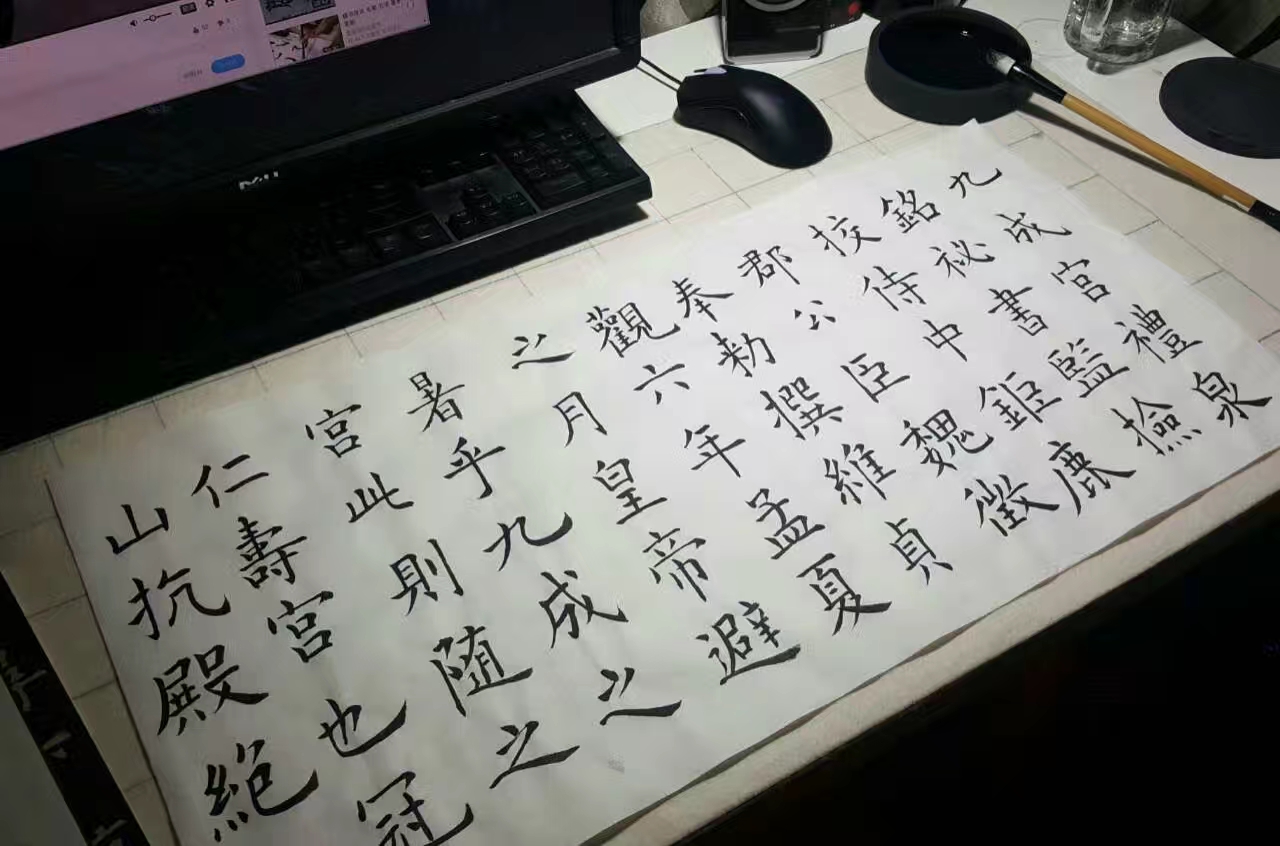 九成宮禮泉
銘祕書監撿
挍侍中鉅鹿
郡公臣魏徵
奉勅撰維貞
觀六年孟夏
之月皇帝避
暑乎九成之
宮此則随之
仁壽宮也冠
山抗殿絶